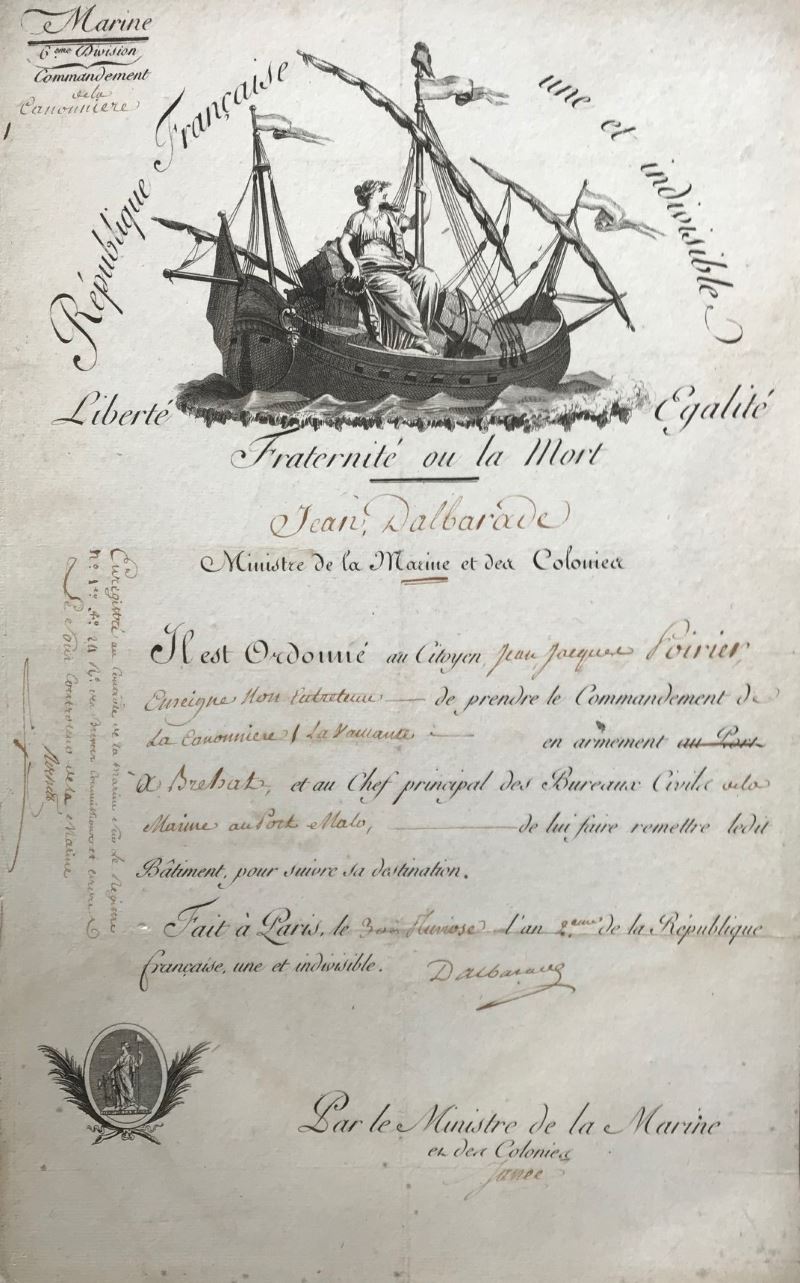 Marine
6ème Division
Commandement
de la
Canonniere
République Française une et indivisible
Liberté Egalité
Fraternité ou la Mort
Jean, Dalbarade
Ministre de la Marine et des Colonies
Il est Ordonné au Citoyen, Jean Jacques Poirier,
Enseigne Non Entretenu de prendre le Commandement de
La Canonniere La Vaillante en armement au Port
à Brehat, et au Chef principal des Bureaux Civils de la
Marine au Port Malo, de lui faire remettre ledit
Bâtiment, pour suivre sa destination.
Fait à Paris, le Pluviose l'an 2.eme de la République
française, une et indivisible. Dalbarade
Enregistré au de la Marine le Registre
N.o
Le Sous Controleur de la Marine
Par le Ministre de la Marine
et des Colonies